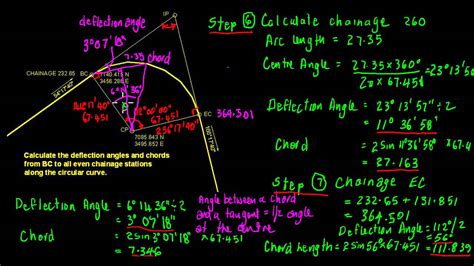 deflection angle
3°07'18"
7.35 chord
IP
CHAINAGE 232.65 BC
7140.413 N
3456.286 E
6°N'36"
67.451
112°00'00"
67.451
256°17'40"
CP
7085.643 N
3495.652 E
EC
364.501
Calculate the deflection angles and chords
from BC to all even chainage stations
along the circular curve.
Deflection Angle = 6°14'36" ÷ 2
= 3° 07' 18"
Chord = 2 sin 3°07'18" × 67.451
= 7.346
Angle between a chord
and a tangent = 1/2 angle
at the centre
Step 6 Calculate chainage 260
Arc length = 27.35
Centre Angle = 27.35 × 360° / 2π × 67.451 = 23°13'57"
Deflection Angle = 23° 13' 57" ÷ 2
= 11° 36' 58"
Chord = 2 sin 11°36'58" × 67.451
= 27.163
Step 7 Chainage EC
= 232.65 + 131.851
= 364.501
Deflection Angle = 112°/2
= 56°
Chord Length = 2 sin 56° × 67.451 = 111.839